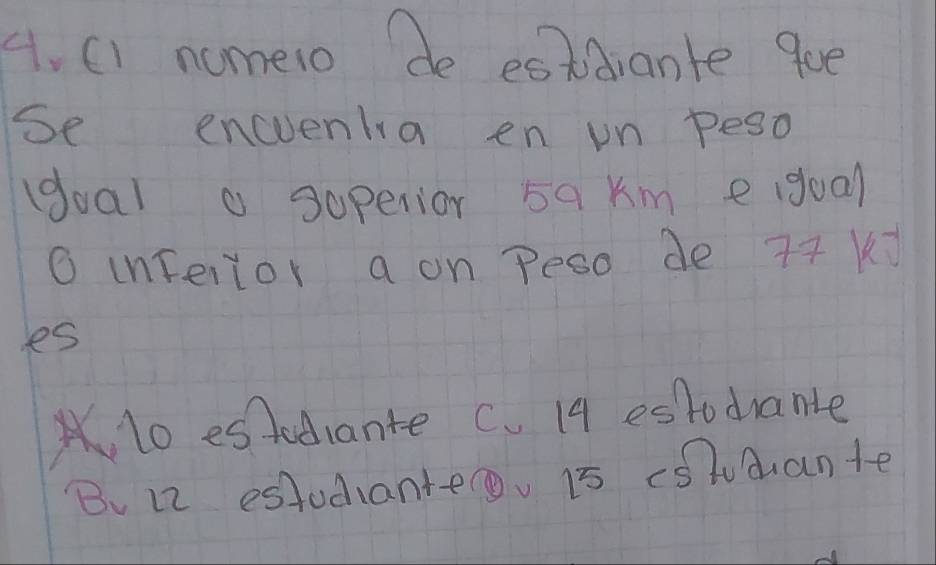 4. El numero de estudiante que
Se encuentra en un peso
igual o superior 59 Km e igual
O inferior a un Peso de 77 KJ
es
A. 10 estudiante C. 14 estudiante
B. 12 estudiante D. 15 estudiante